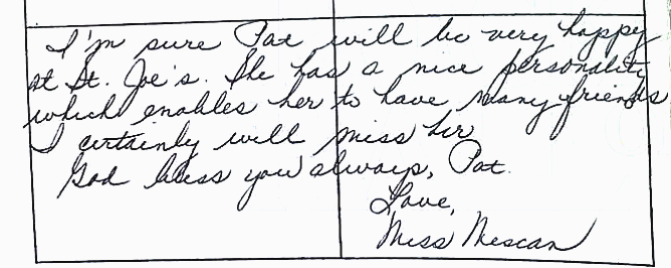 I'm sure Pat will be very happy
at St. Joe's. She has a nice personality
which enables her to have many friends
I certainly will miss her
God bless you always, Pat.
Love,
Miss Mescan